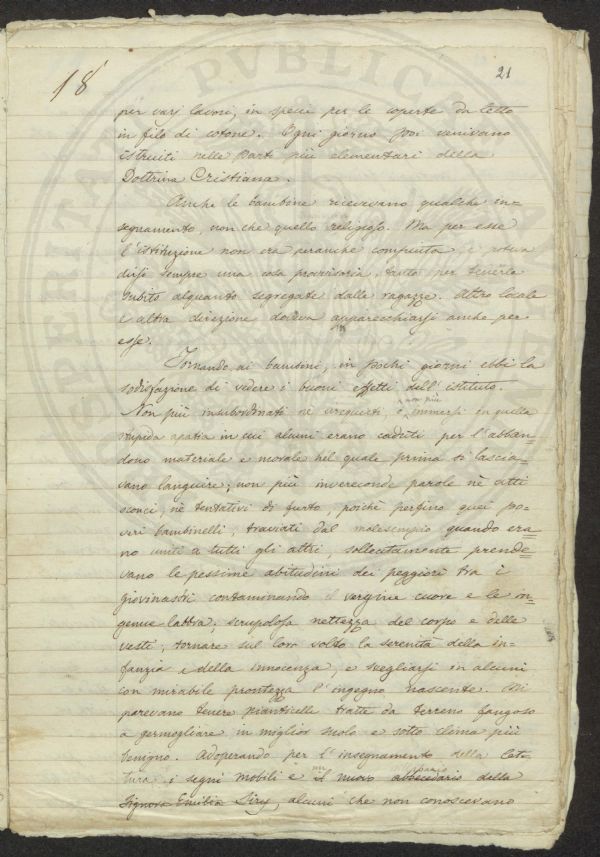 18
21
per varj lavori, in specie per le coperte da letto
in filo di cotone. Ogni giorno poi venivano
istruiti nelle parti più elementari della
Dottrina Cristiana.
Anche le bambine ricevevano qualche in-
segnamento, non che quello religioso. Ma per esse
l'istituzione non era peranche compiuta, e poteva
dirsi sempre una cosa provvisoria, tanto per tenerle
subito alquanto segregate dalle ragazze. Altro locale
e altra direzione doveva apparecchiarsi anche per
esse.
Tornando ai bambini, in pochi giorni ebbi la
sodisfazione di vedere i buoni effetti dell'istituto.
non più
Non più insubordinati nè irrequieti, o immersi in quella
stupida apatia in cui alcuni erano caduti per l'abban-
dono materiale e morale nel quale prima si lascia-
vano languire; non più invereconde parole nè atti
sconci, nè tentativi di furto, poichè perfino quei po-
veri bambinelli, traviati dal malesempio quando era-
no uniti a tutti gli altri, sollecitamente prende-
vano le pessime abitudini dei peggiori tra i
giovinastri contaminando il vergine cuore e le in-
genue labbra; scrupolosa nettezza del corpo e delle
vesti, tornare sul loro volto la serenità della in-
fanzia e della innocenza, e svegliarsi in alcuni
con mirabile prontezza l'ingegno nascente. Mi
parevano tenere pianticelle tratte da terreno fangoso
a germogliare in miglior suolo e sotto clima più
benigno. Adoperando per l'insegnamento della let-
tura i segni mobili e il nuovo abbecedario della
Signora Emilia, alcuni che non conoscevano